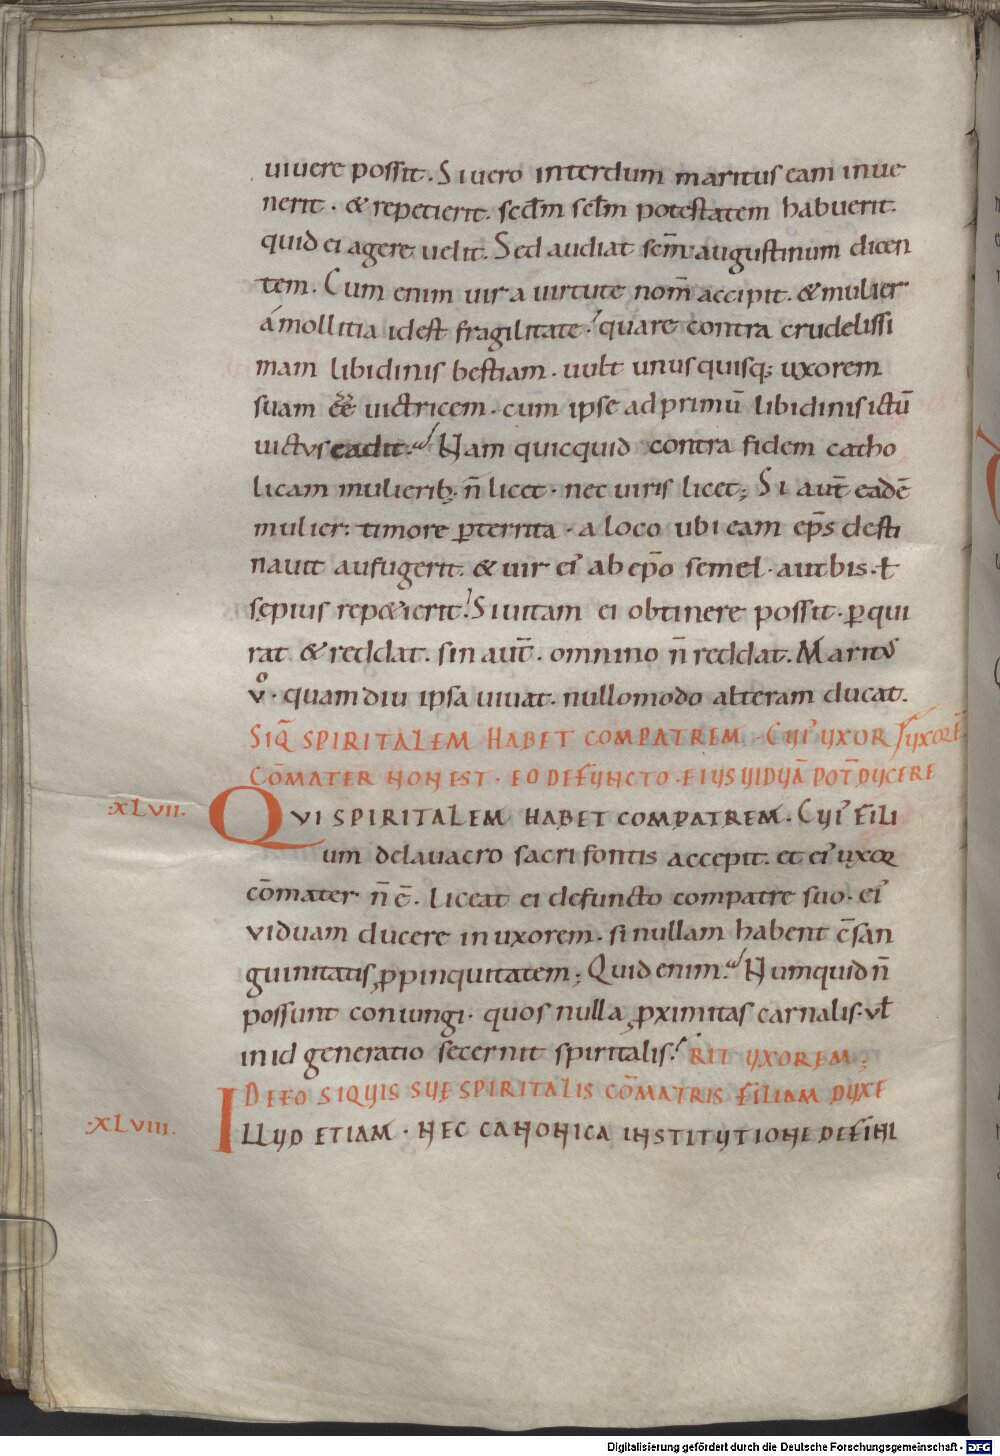 uiuere possit. Si uero interdum maritus eam inue
nerit. & repetierit. secd̄m scłm potestatem habuerit.
quid ei agere uelit. Sed audiat sc̄m augustinum dicen
tem. Cum enim uir a uirtute nom̄ accipit. & mulier
á mollitia id est fragilitate. quare contra crudelissi
mam libidinis bestiam. uult unus quisq; uxorem
suam ēē uictricem. cum ipse ad primū libidinis ictū
uictus cadit. Nam quicquid contra fidem catho
licam mulierib; n̄ licet. nec uiris licet; Si aut̄ eadē
mulier: timore ꝑterrita. a loco ubi eam ep̄s desti
nauit aufugerit. & uir ei' ab ep̄o semel. aut bis. ł
sepius repetierit! Si uitam ei obtinere possit. ꝑqui
rat & reddat. sin aut̄. omnino n̄ reddat. Maritus
vͦ. quamdiu ipsa uiuat. nullomodo alteram ducat.
SIQ̄ SPIRITALEM HABET COMPATREM. CUI' UXOR
UXORĒ.
CŌMATER NON EST. EO DEFUNCTO. EIUS UIDUĀ POT̄ DUCERE
.XLVII.
QVI SPIRITALEM HABET COMPATREM. CUI' FILI
um de lauacro sacri fontis accepit. et ei' uxor
cōmater n̄ ē. liceat ei defuncto compatre suo. ei'
viduam ducere in uxorem. si nullam habent c̄san
guinitatis ꝓpinquitatem; Quid enim. Numquid n̄
possunt coniungi. quos nulla ꝓximitas carnalis. vł
in id generatio secernit spiritalis.
RIT UXOREM;
DE EO SI QUIS SUE SPIRITALIS CŌMATRIS FILIAM DUXE
.XLVIII.
ILLUD ETIAM. NEC CANONICA INSTITUTIONE DEFINI
Digitalisierung gefördert durch die Deutsche Forschungsgemeinschaft - DFG